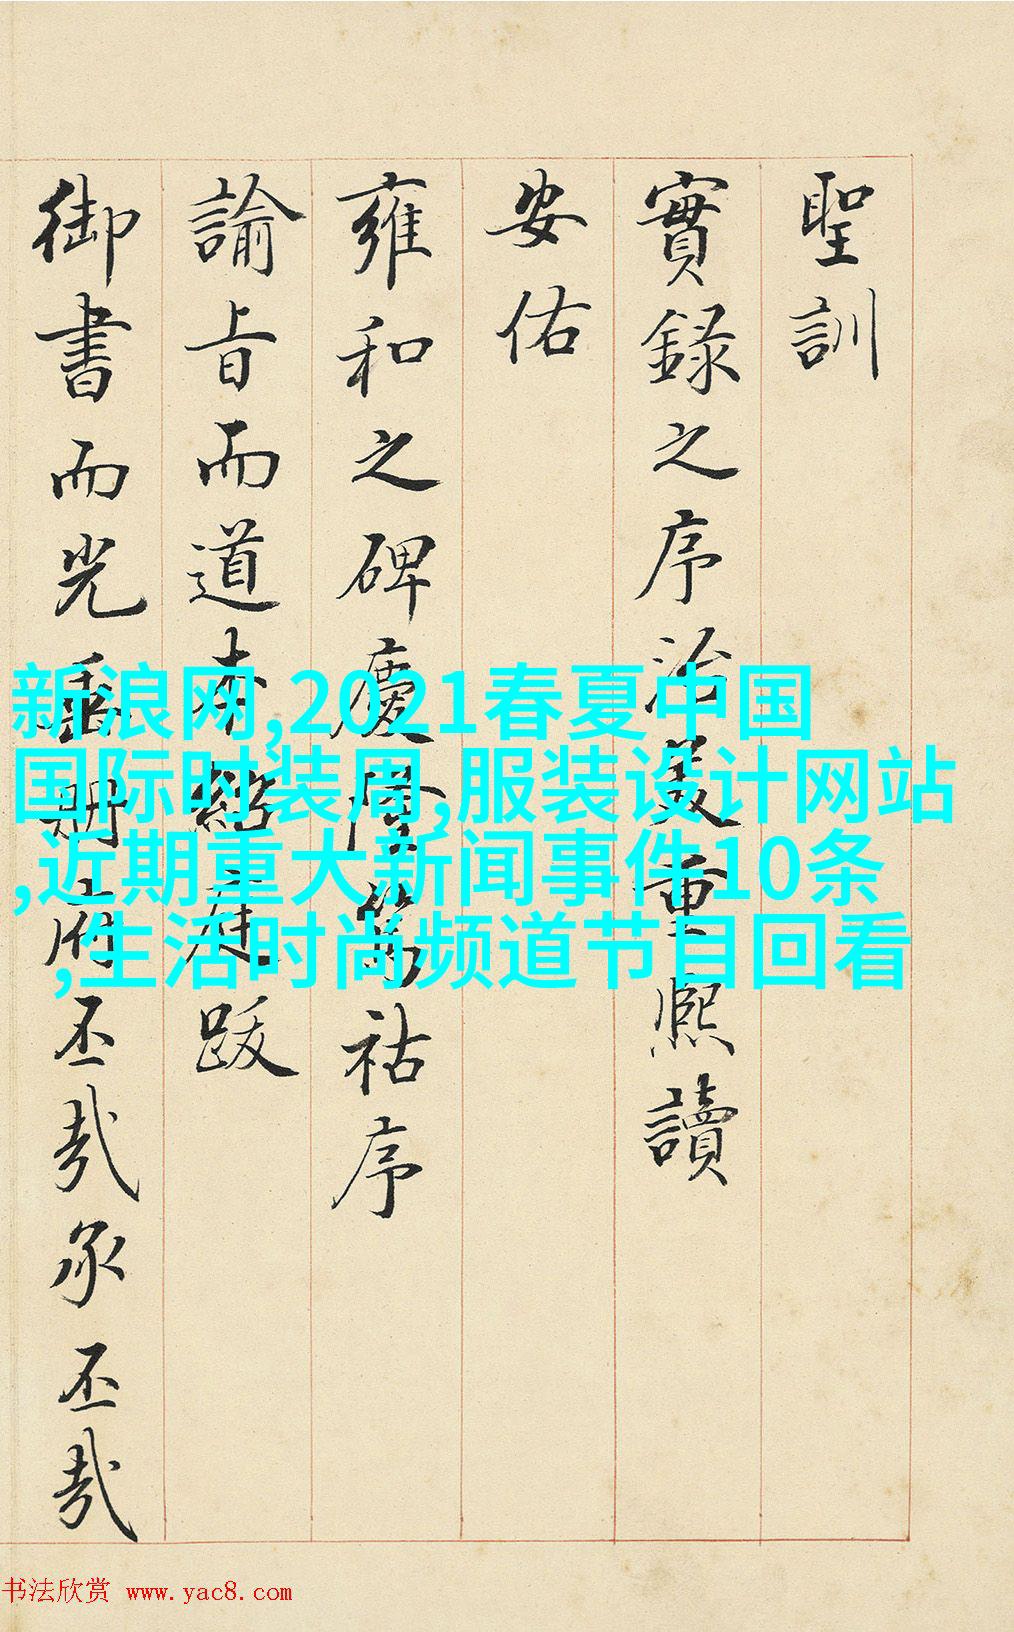 聖訓
實錄之序治美重熙讀
安佑
雍和之碑慶隆篤祜序
諭旨而道本紹庭跋
御書而光垂冊府丕哉承丕哉
新浪网,2021春夏中国
国际时装周,服装设计网站
,近期重大新闻事件10条
,生活时尚频道节目回看
书法欣赏 www.yac8.com